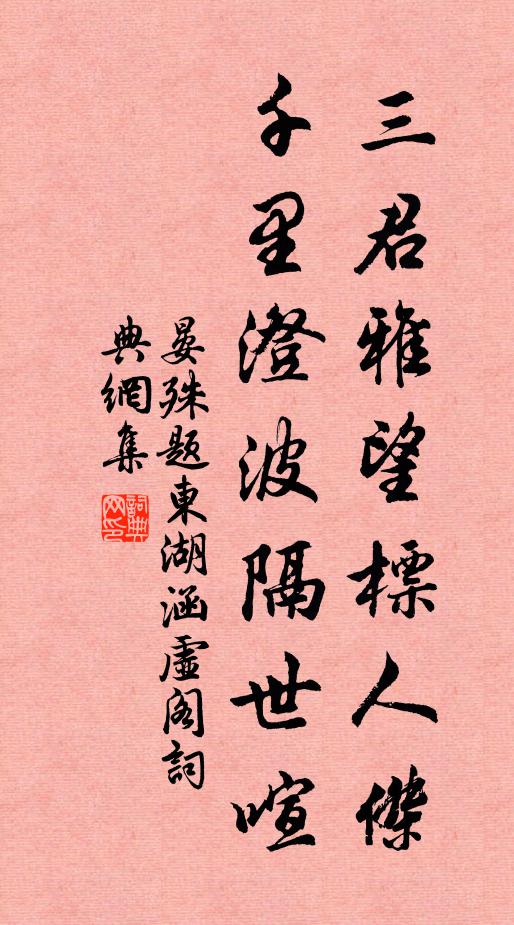 三君雅望標人傑
千里澄波隔世喧
晏殊題東湖涵虛阁詞
典網集
詞典網印